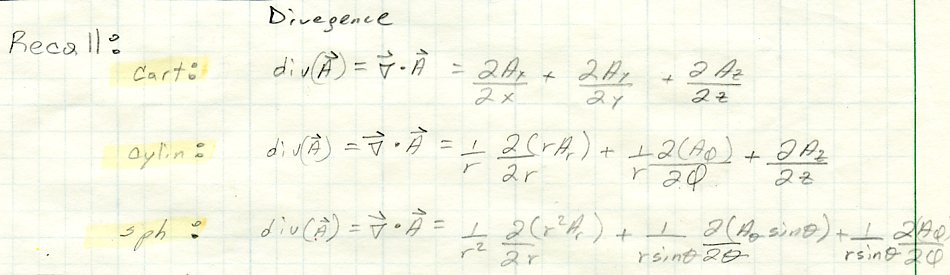 Divegence
Recall:
Cart: div(A⃗) = ∇⃗ · A⃗ = ∂Aₓ/∂x + ∂Aᵧ/∂y + ∂A_z/∂z
cylin: div(A⃗) = ∇⃗ · A⃗ = 1/r ∂(rAᵣ)/∂r + 1/r ∂(A_φ)/∂φ + ∂A_z/∂z
sph: div(A⃗) = ∇⃗ · A⃗ = 1/r² ∂(r²Aᵣ)/∂r + 1/(r sinθ) ∂(A_θ sinθ)/∂θ + 1/(r sinθ) ∂A_φ/∂φ